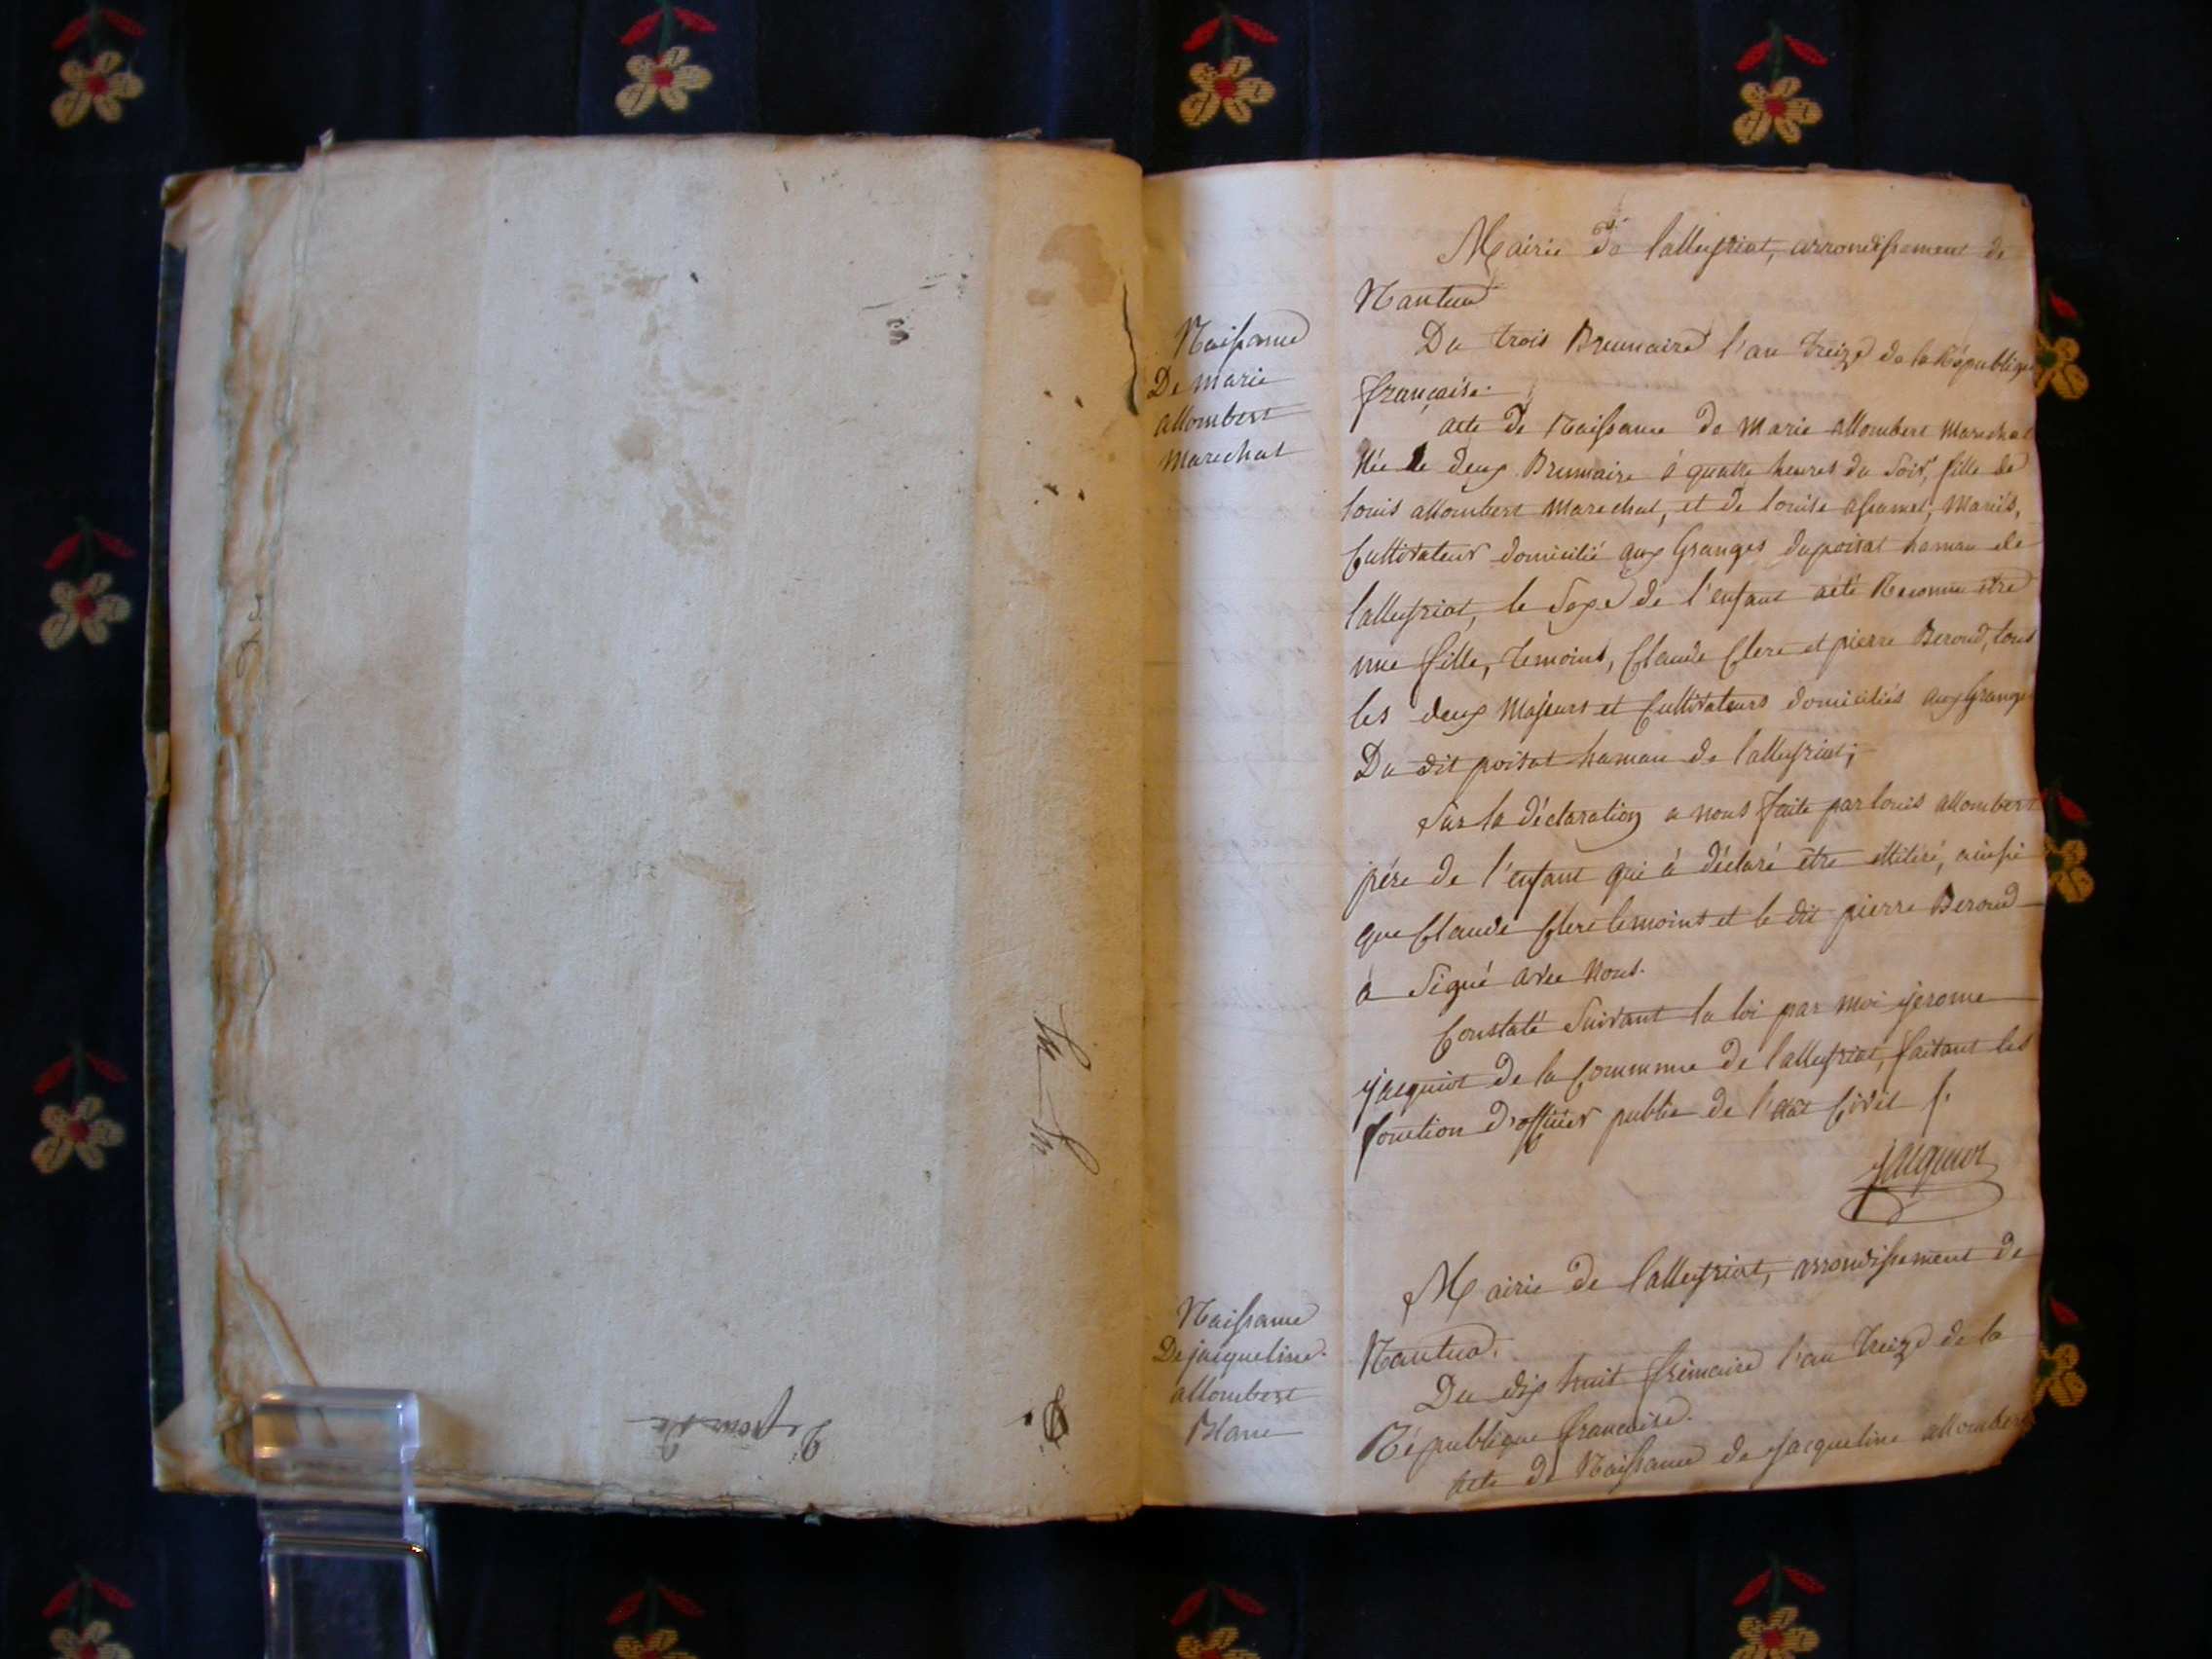 Naissance
De marie
allombert
marechal
Mairie de lalleyriat, arrondissement de
Nantua
Du trois Brumaire l'an treize de la République
française.
acte de Naissance de Marie allombert Marechal
Née le deux Brumaire à quatre heures du Soir, fille de
louis allombert marechal, et de louise, Mariés,
Cultivateur domicilié aux Granges dupoisat hamau de
lalleyriat, le Sexe de l'enfant aété Reconnu être
une fille, temoins, Claude Clere et pierre Beroud, tous
les deux Majeurs et Cultivateurs domiciliés aux Granges
Du dit poisat hamau de lalleyriat;
Sur la déclaration a nous faite par louis allombert
père de l'enfant qui à déclaré être illitéré, ainsi
que Claude Clere temoins et le dit pierre Beroud
à Signé avec Nous.
Constaté Suivant la loi par moi jerome
jacquiot de la Commune de lalleyriat, faisant les
fonction d'officier public de l'état Civil
jacquiot
Naissance
De jacqueline
allombert
Blanc
Mairie de lalleyriat, arrondissement de
Nantua.
Du dix huit frimaire l'an treize de la
République francaise.
Acte de Naissance de jacqueline allombert